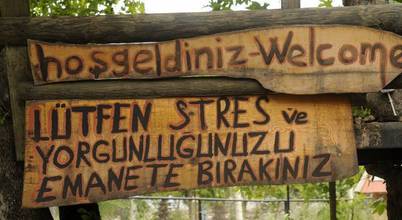 hoşgeldiniz-Welcome
LÜTFEN STRES ve
YORGUNLUĞUNUZU
EMANETE BIRAKINIZ